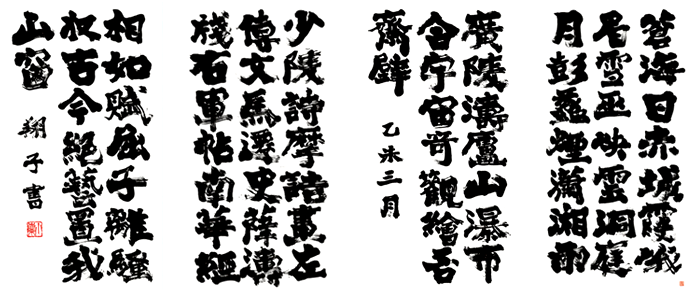 蒼海日赤城霞峨
眉雪巫峽雲洞庭
月彭蠡煙瀟湘雨
廣陵濤廬山瀑布
合宇宙奇觀繪吾
齋壁
乙未三月
少陵詩摩詰畫左
傳文馬遷史薛濤
牋右軍帖南華經
相如賦屈子離騷
收古今絕藝置我
山窗
翔子書